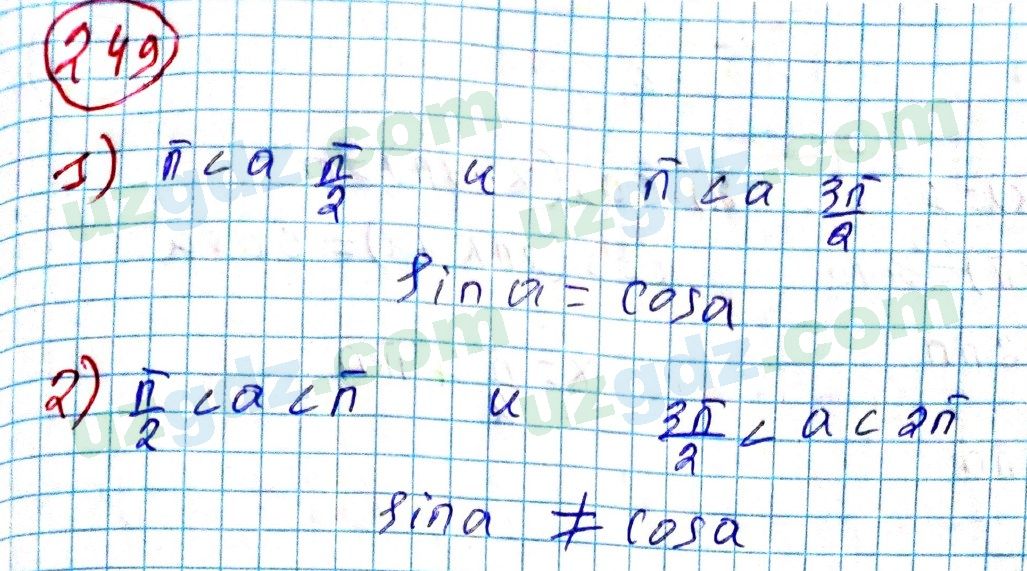 249
1) π < a π/2 и π < a 3π/2
sin a = cos a
2) π/2 < a < π и 3π/2 < a < 2π
sin a ≠ cos a
uzgdz.com uzgdz.com
uzgdz.com uzgdz.com